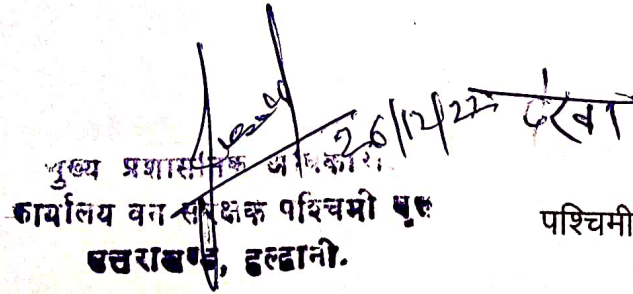 26/12/22 देखा
मुख्य प्रशासनिक अधिकारी
कार्यालय वन संरक्षक पश्चिमी वृत्त
पश्चिमी
उत्तराखण्ड, हल्द्वानी.